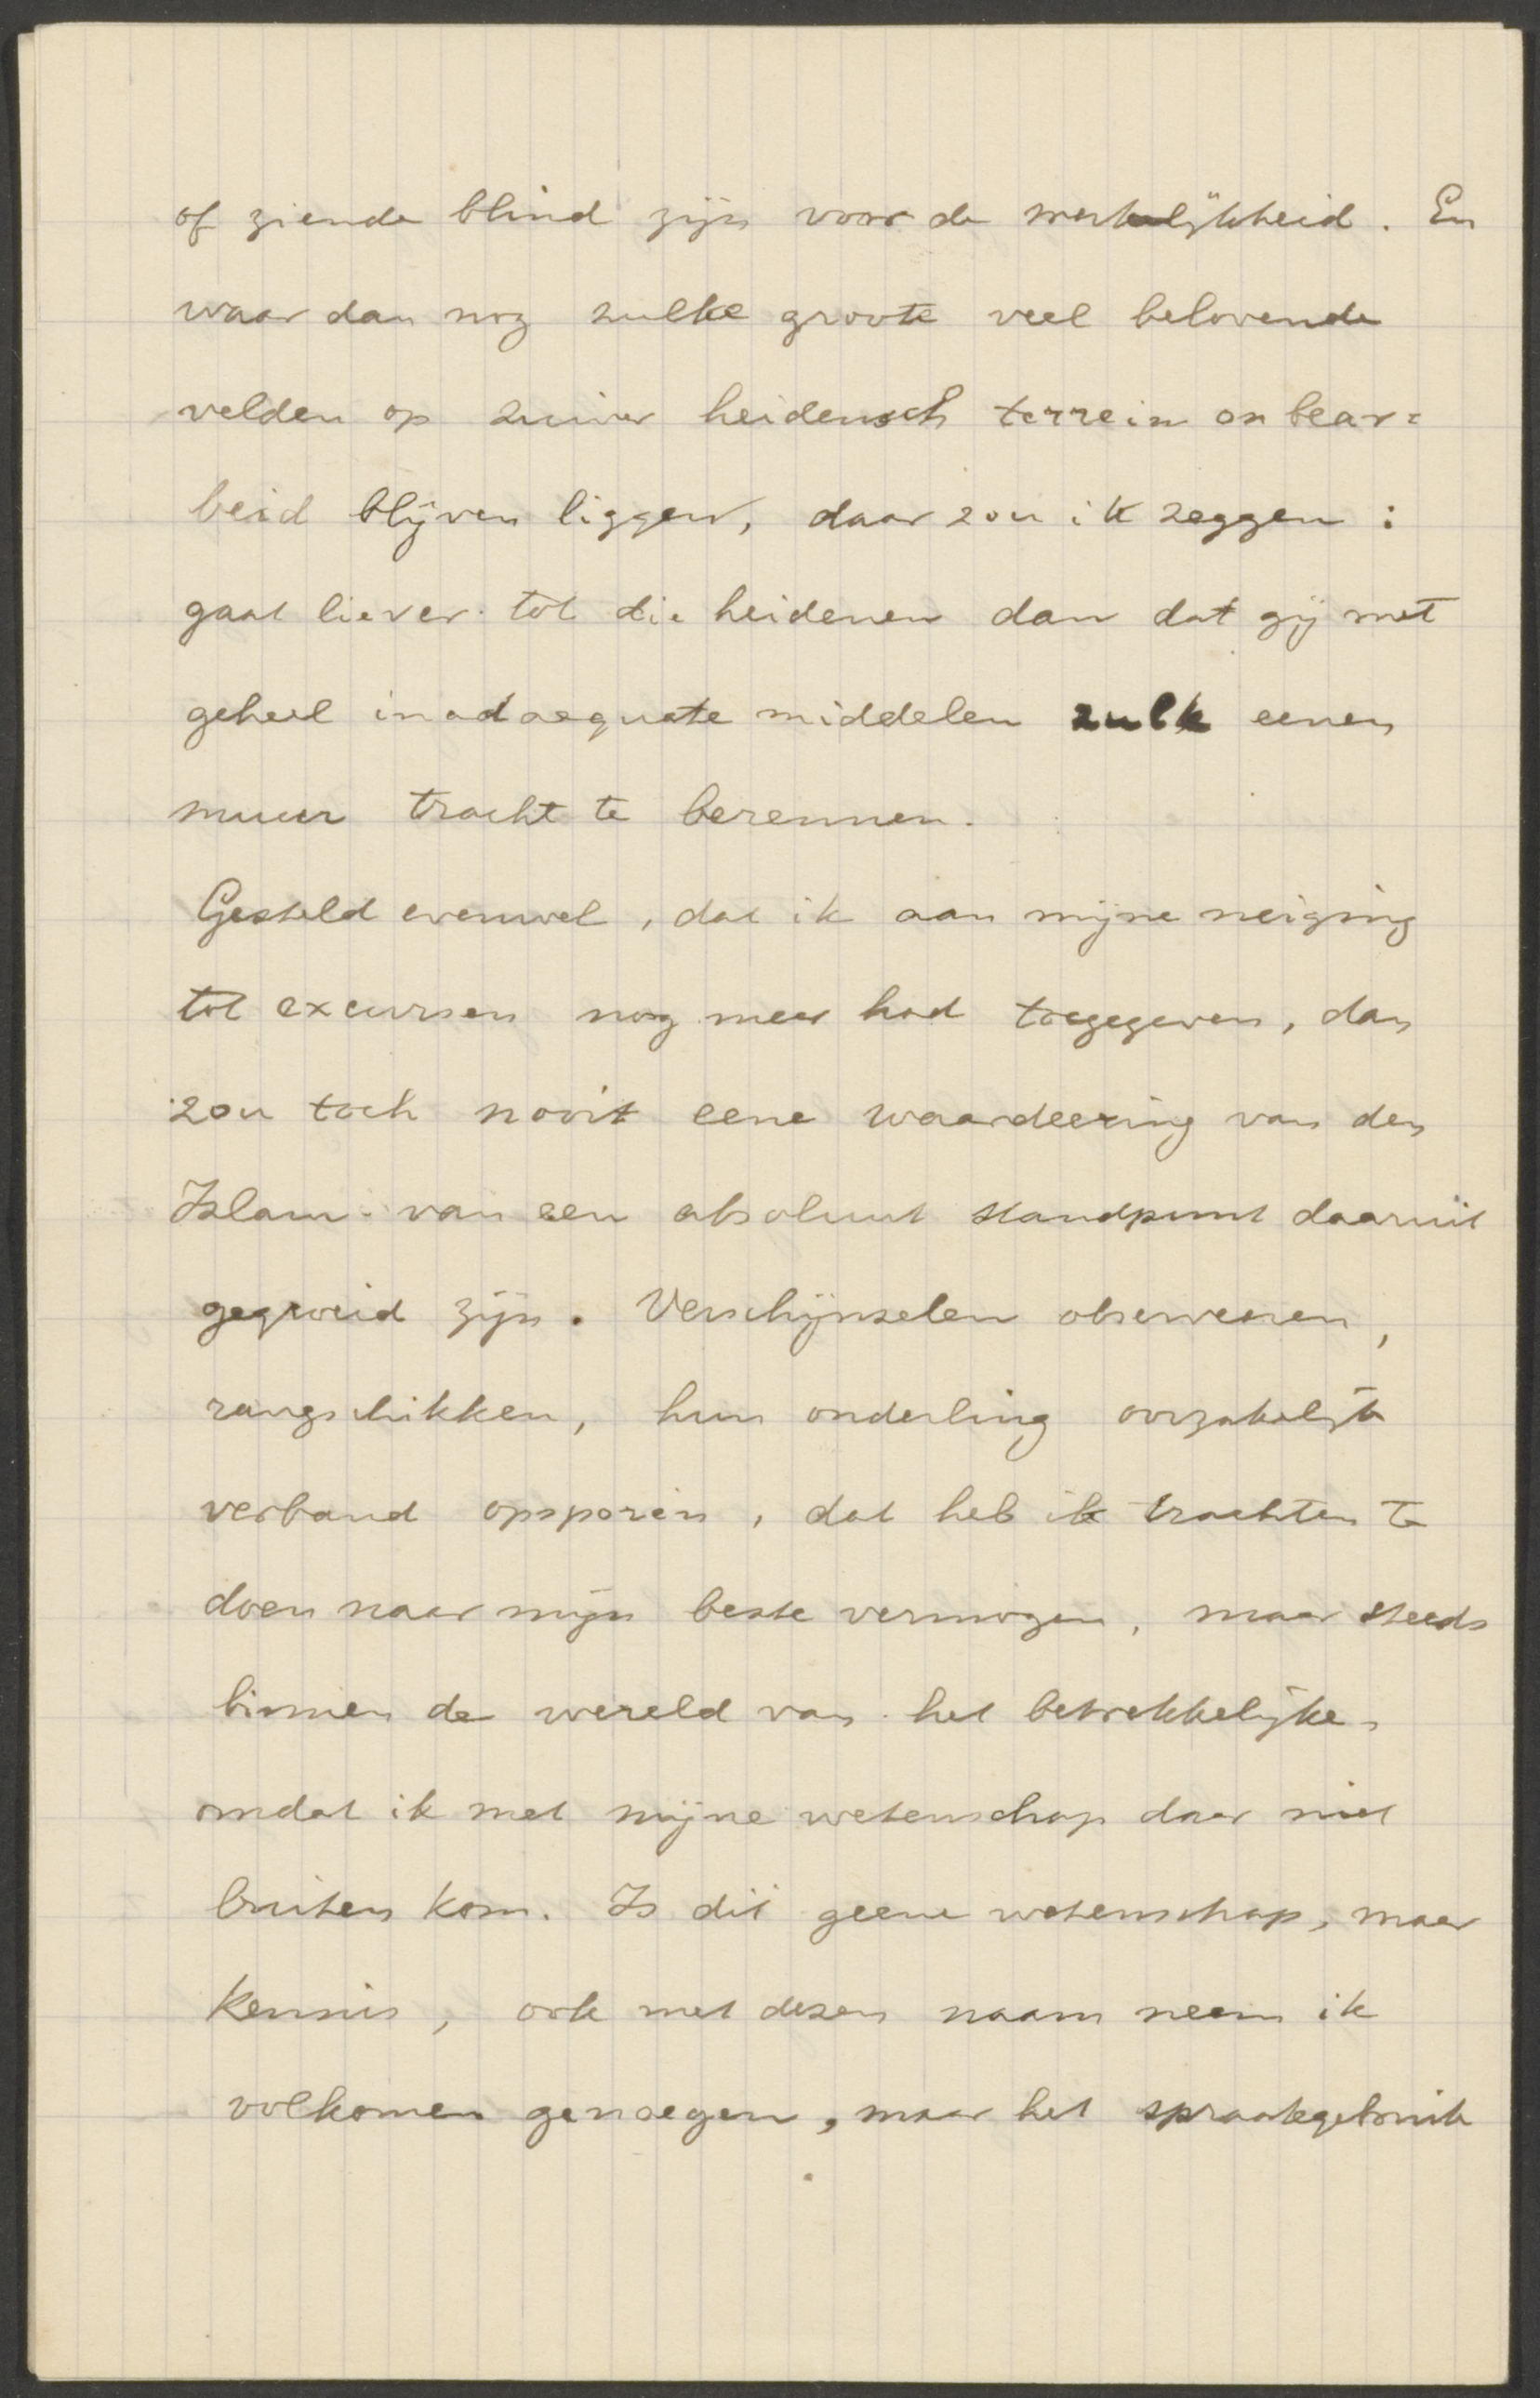 of ziende blind zijn voor de werkelijkheid. En
waar dan nog zulke groote veel belovende
velden op zuiver heidensch terrein onbear=
beid blijven liggen, daar zou ik zeggen:
gaat liever tot die heidenen dan dat gij met
geheel inadaequate middelen zulk eenen
muur tracht te berennen.
Gesteld evenwel, dat ik aan mijne neiging
tot excursen nog meer had toegegeven, dan
zou toch nooit eene waardeering van den
Islam van een absoluut standpunt daaruit
gegroeid zijn. Verschijnselen observeeren,
rangschikken, hun onderling oorzakelijk
verband opsporen, dat heb ik trachten te
doen naar mijn beste vermogen, maar steeds
binnen de wereld van het betrekkelijke,
omdat ik met mijne wetenschap daar niet
buiten kom. Is dit geene wetenschap, maar
kennis, ook met dezen naam neem ik
volkomen genoegen, maar het spraakgebruik